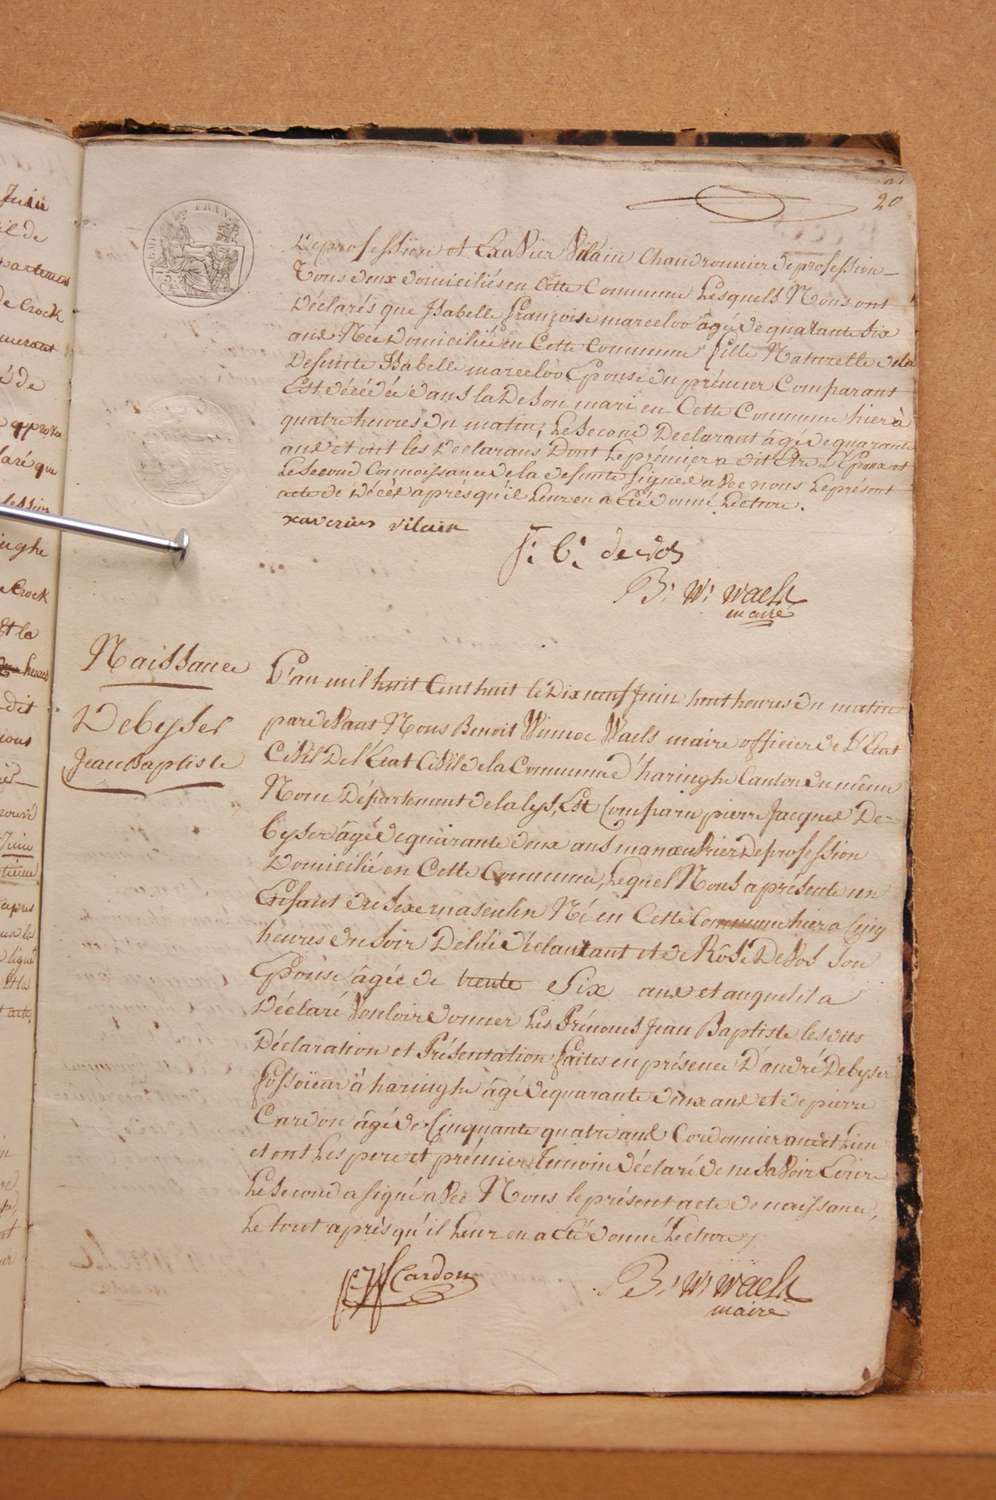 20
De profession et Xavier Vilain Chaudronnier de profession
Tous deux domiciliés en Cette Commune Lesquels Nous ont
Déclarés que Isabelle Françoise mareeloo âgé de quarante Six
ans Née Domiciliée en Cette Commune fille Naturelle de la
Defunte Isabelle mareeloo Epouse du prémier Comparant
Est décédée dans la De Son mari en Cette Commune hier à
quatre heures du matin, Le Second Déclarant âgé de quarante
ans et ont les Déclarans Dont Le prémier a dit Etre L'Epoux et
Le Second Connoissance de la defunte Signés avec nous Le présent
acte de Décès après qu'il Leur en a Eté donné Lecture.
xaverius vilain
J: B: de vos
B: W: Waels
maire
Naissance
Debyser
Jean Baptiste
L'an mil huit Cent huit le Dix neuf Juin huit heures du matin
pardevant Nous Benoit Winnoc Waels maire officier de L'Etat
Civil De L'Etat Civil de la Commune d'haringhe Canton du même
Nom Département de la lys, Est Comparu pierre Jacques De-
byser âgé de quarante deux ans manoeuvrier De profession
Domicilié en Cette Commune, Lequel Nous a présenté un
Enfant du Sexe masculin Né en Cette Commune hier a Cinq
heures du Soir De lui déclarant et de Rose De Vos Son
Epouse âgée de trente Six ans et auquel il a
Déclaré Vouloir donner Les Prénoms Jean Baptiste les dits
Déclaration et Présentation faites en présence D'andré Debyser
fossoieur à haringhe âgé de quarante deux ans et de pierre
Cardon âgé de Cinquante quatre ans Cordonnier audit Lieu
et ont Les pere et prémier Temoin déclaré de ne Savoir Ecrire
Le Second a signé avec Nous le présent acte de naissance,
Le tout après qu'il Leur en a Eté donné Lecture
Cardon
B: W: Waels
maire